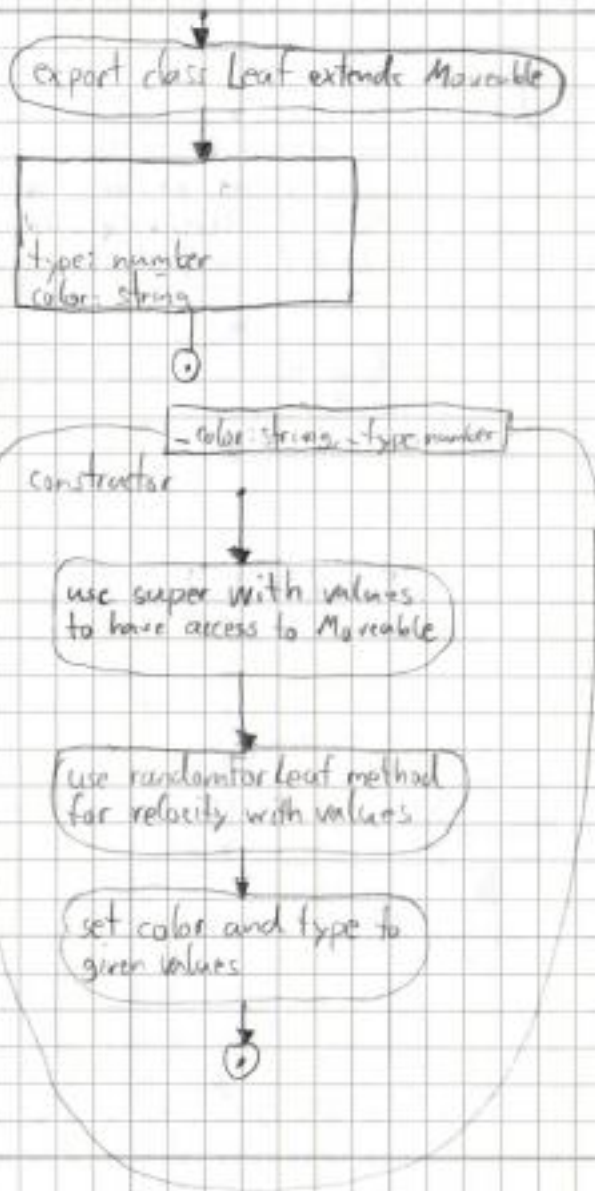 export class Leaf extends Moveable
type: number
color: string
_color: string, _type number
constructor
use super with values
to have access to Moveable
use randomForLeaf method
for velocity with values
set color and type to
given values